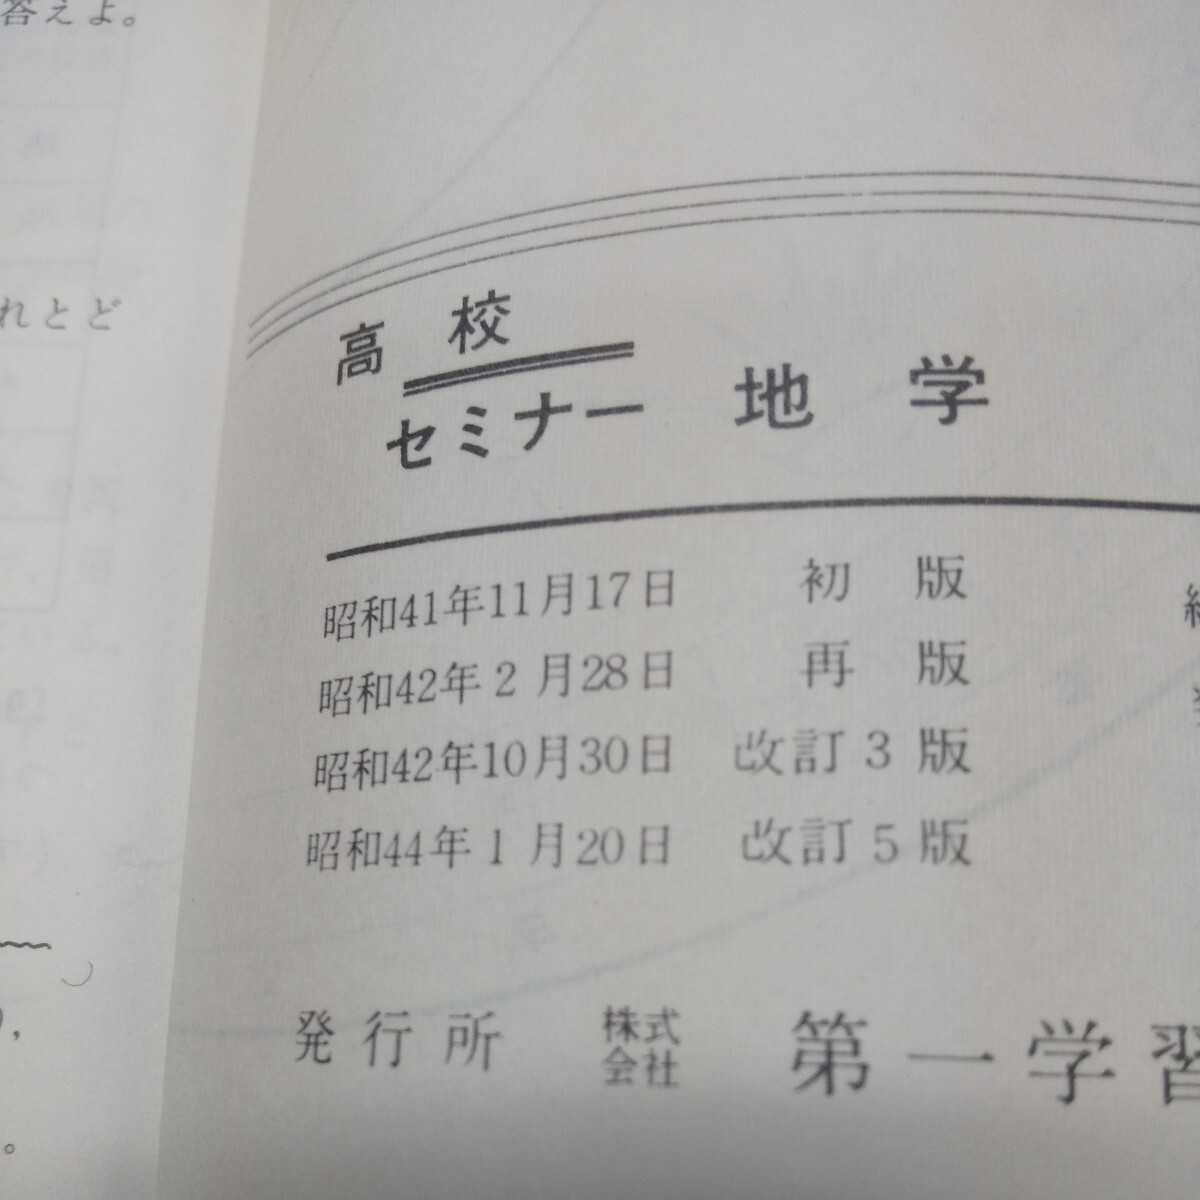 答えよ。
れとど
高校
セミナー 地学
昭和41年11月17日 初版
昭和42年2月28日 再版
昭和42年10月30日 改訂3版
昭和44年1月20日 改訂5版
発行所 株式会社 第一学習